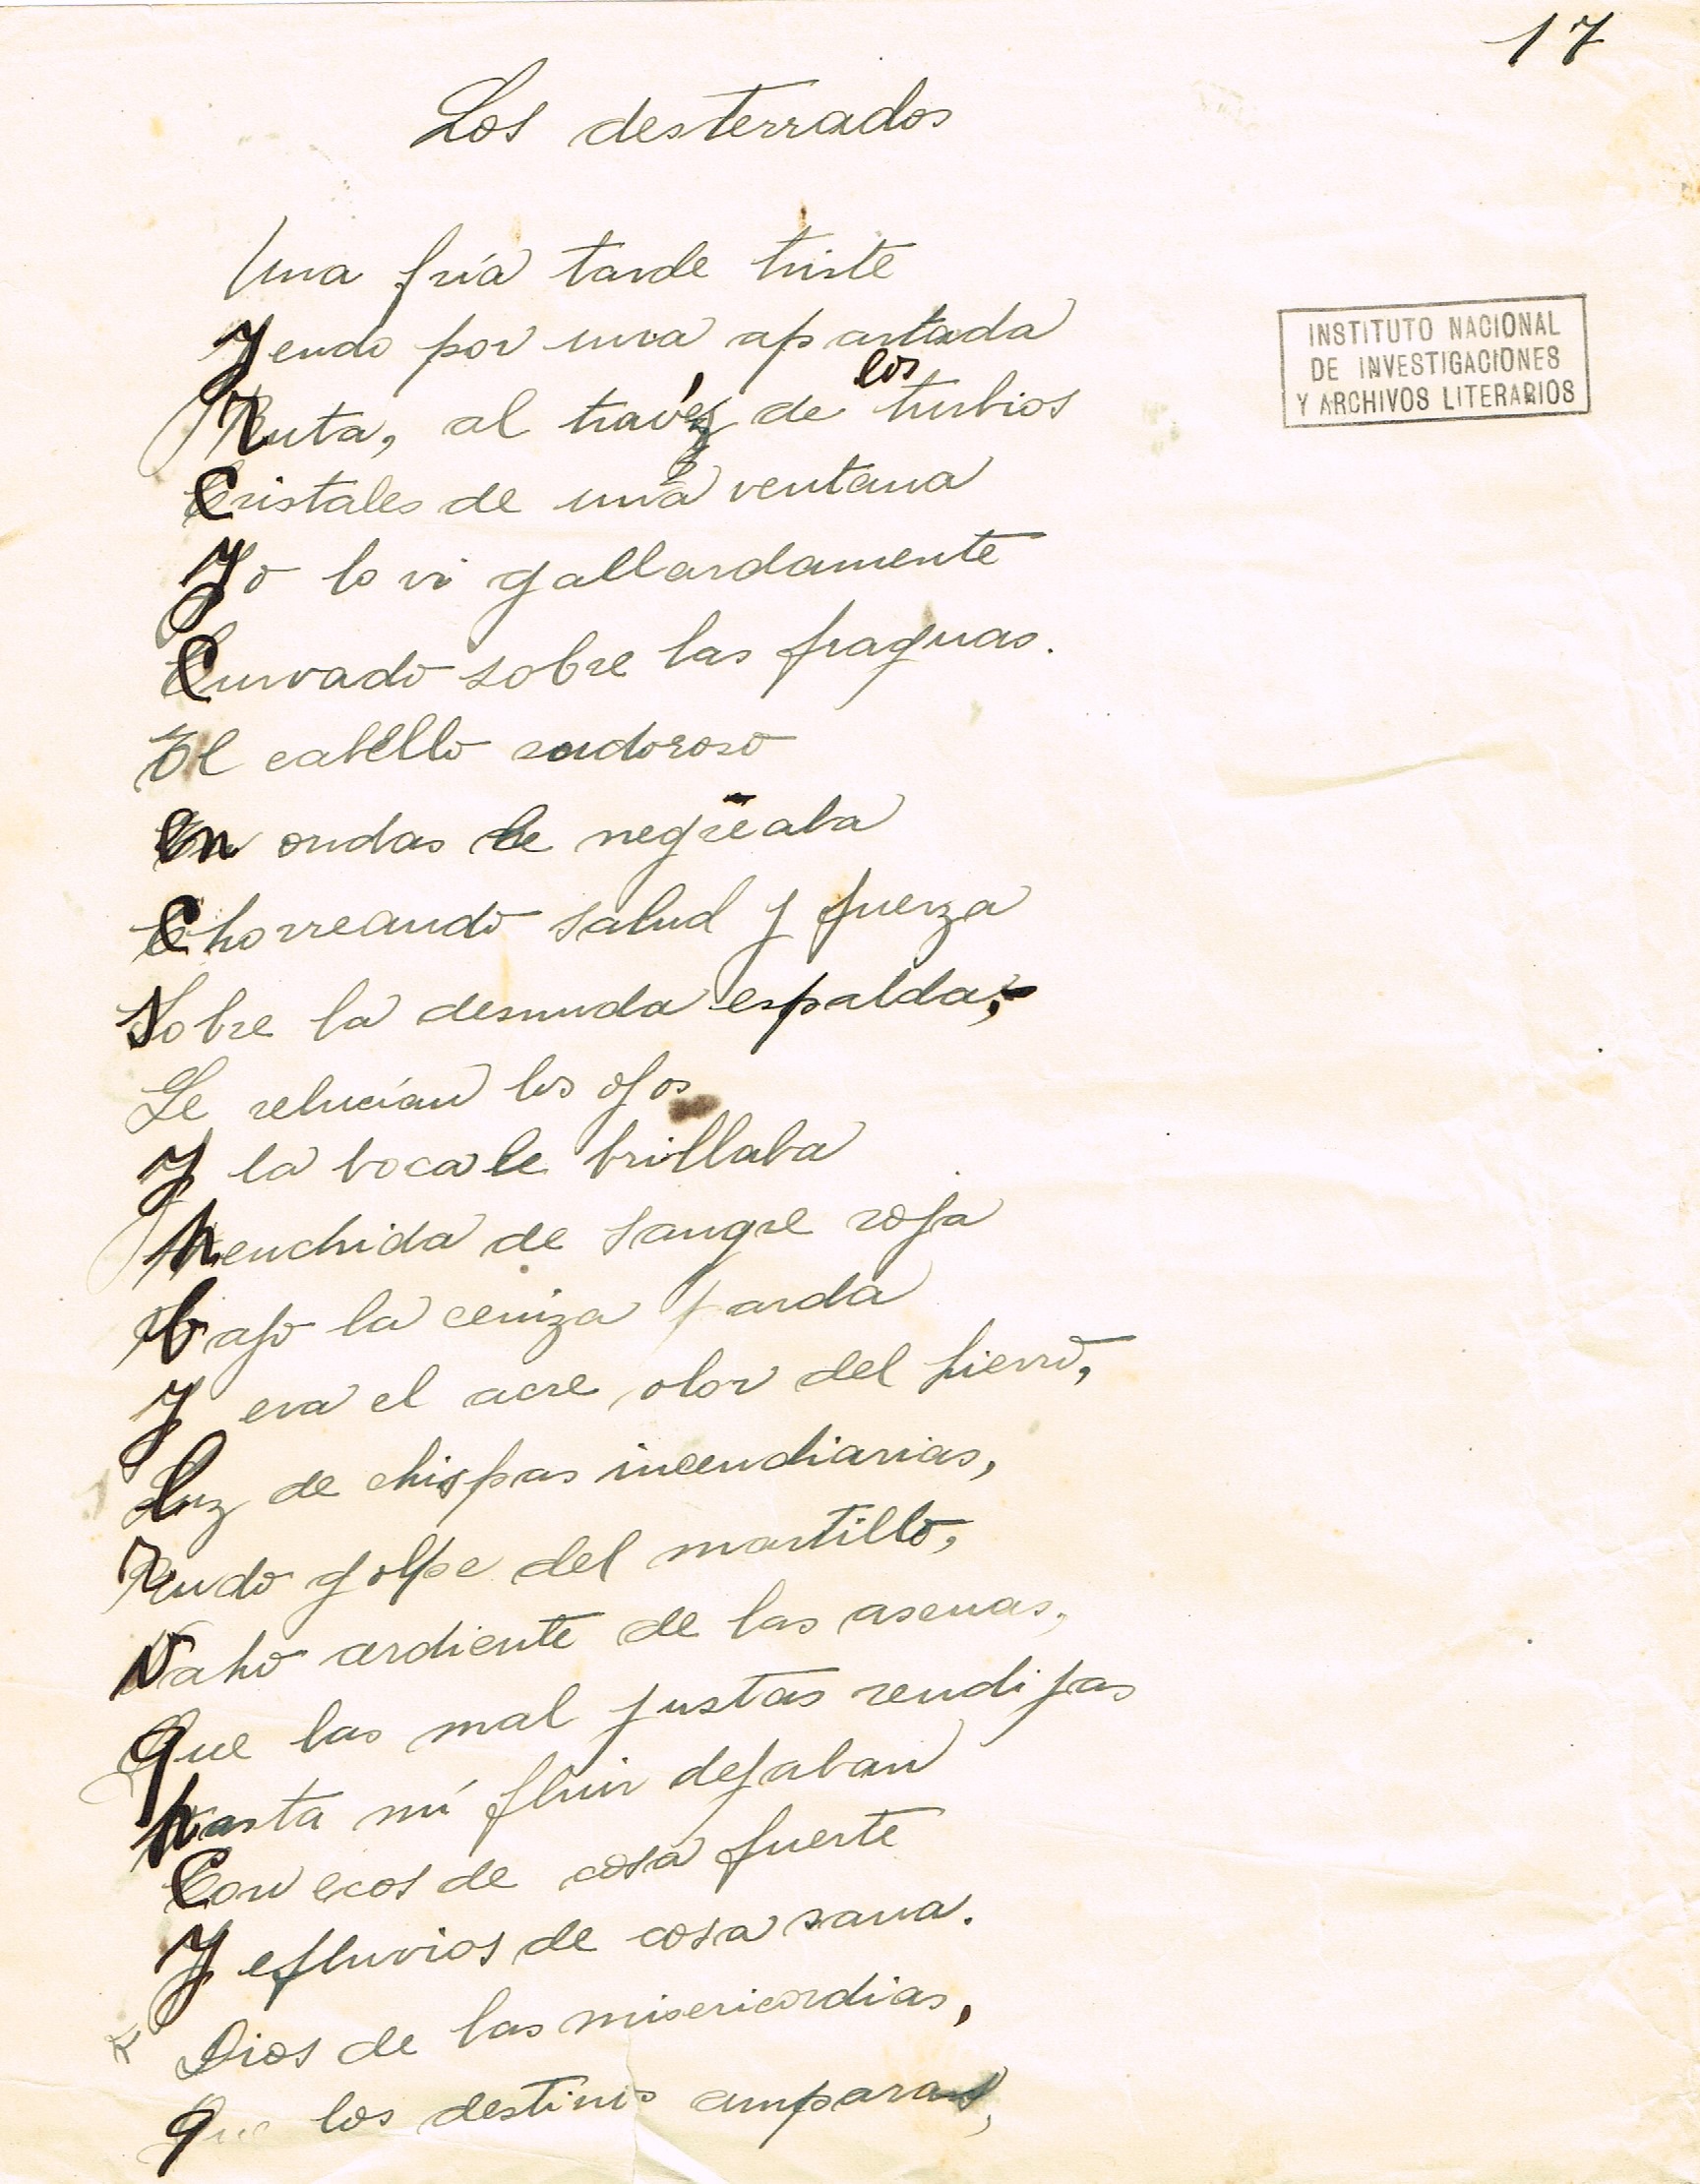 17
Los desterrados
Una fría tarde triste
Yendo por una apartada
Ruta, al través de los turbios
Cristales de una ventana
Yo lo vi gallardamente
Curvado sobre las fraguas.
El cabello sudoroso
En ondas le negreaba
Chorreando salud y fuerza
Sobre la desnuda espalda,
Le relucían los ojos
Y la boca le brillaba
henchida de sangre roja
bajo la ceniza parda
Y era el acre olor del hierro,
Luz de chispas incendiarias,
Rudo golpe del martillo,
Vaho ardiente de las ascuas,
que las mal justas rendijas
hasta mí fluir dejaban
Con ecos de cosa fuerte
Y efluvios de cosa sana.
Dios de las misericordias,
que los destinos amparas,
INSTITUTO NACIONAL
DE INVESTIGACIONES
Y ARCHIVOS LITERARIOS